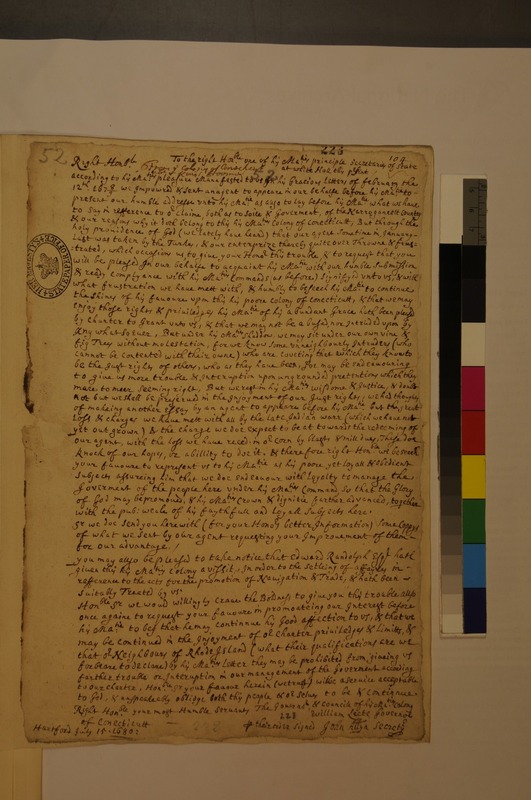 52
223
104
Right Honble
To the right Honble one of his Maties principle Secretarys of State
according to his Maties pleasure manifested to us by his Gracious letters of february the
12th 1678 we Impowred & sent an agent to appeare in our behalfe before his Matie to
present our humble addresse unto his Matie as also to lay before his Matie what we have
to Say in refference to our claime, both as to Soile & Government, of the Narrogancett Country
& our reasons why it doth belong to his Maties Colony of Conecticutt, But through the
holy providence of God (we lately have heard) that our agent Sometime in January
last was taken by the Turkes, & our enterprize thereby quite over Throwne & frus-
trated, which occasions us to give your Honor this trouble & to request that you
will be pleased in our behalfe to acquaint his Matie with our humble Submission
& ready complyance with his Maties Commands (as before) Signified unto us, & with
what frustration we have met with, & humbly to beseech his Matie to continue
the Shines of his favoure upon this his poore colony of conecticutt, & that we may
enjoy those rights & priviledges his Matie of his abundant Grace hath been pleased
by Charter to Grant unto us, & that we may not be abused nor intruded upon by
any whatsoever, But under his Maties Shadow we may sit under our own vine &
fig Tree without molestation, for we know some unneighbourly Intruders (who
cannot be contented with their owne) who are coveting that which they know to
be the Just rights of others, who as they have been, Soe may be endeavouring
to give us more trouble & Interruption upon ungrounded pretentions which they
make to meet Seeming right. But we rest in his Maties wisdome & Justice, & doubt
not but we shall be preserved in the Injoyment of our Just rights; we had thoughts
of makeing another essay by an agent to appeare before his Matie but the great
Loss & charges we have met with all by the late Indian warr (which we have not
yet out grown) & the charge we doe expect to be at towards the redeeming of
our agent, with the loss we have received in or Corn by blasts & mildues, These doe
knock off our hopes, or abillity to doe it. & therefore right Honble we beseech
your favoure to represent us to his Matie as his poore yet loyall & obedient
Subjects assureing him that we doe endeavour with loyalty to manage the
Goverment of the people here under his Maties Command, so that the Glory
of God may be promoted, & his Maties Crown & dignitie farther advanced, together
with the publ: weale of his faythfull and loyall Subjects here:
Sr we doe send you herewith (for your Honors better Information) Some Coppys
of what we sent by our agent requesting your Improvement of them
for our advantage /
you may also be pleased to take notice that Edward Randolph Esqr hath
given this his Maties colony a vissit, in order to the setling of affayres in
refference to the acts for the promotion of Navigation & Trade, & hath been
Suitably Treated by us:
Honble Sr we would willingly crave the Boldness to give you this trouble also
once againe to request your favoure in promoteing our Interest before
his Matie to beg that he may continnue his good affection to us, & that we
may be continued in the Injoyment of or Charter priviledges & limits, &
that or Neighbours of Rhode Island (what their quallifications are we
forbeare to declare) by his Maties letter they may be prohibited from giveing us
farther trouble or Interruption in our management of the Goverment according
to our charter, Honble Sr your favoure herein (we trust) will be a service acceptable
to God, & unspeakably obleidge both this people & or Selves to be & continue
Right Honble your most humble Servants The Governor & councill of his Maties Colony
of Conecticutt
228 William Leete Governor
Hartford July 15: 1680:
p their order signed John Allyn Secretry